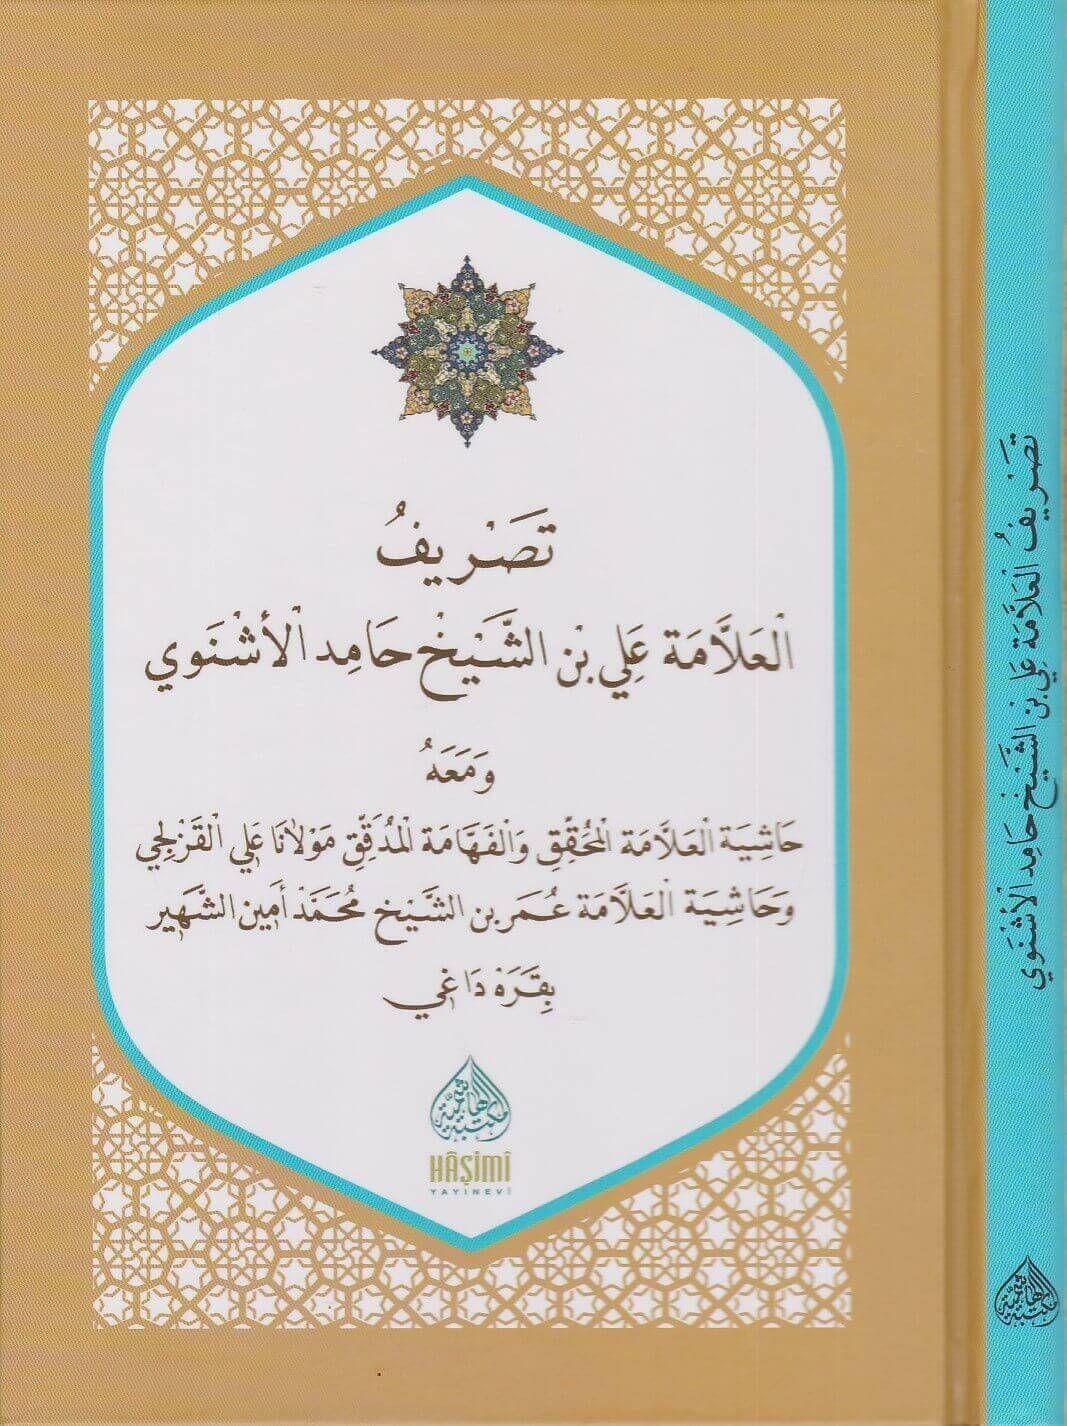 تَصْرِيفُ
الْعَلَّامَة عَلِي بْن الشَّيْخ حَامِد الْأُشْنَوِي
وَمَعَهُ
حَاشِيَة الْعَلَّامَة الْمُحَقِّقِ وَالْفَهَّامَة الْمُدَقِّقِ مَوْلَانَا عَلِي الْقَزْلِجِي
وَحَاشِيَة الْعَلَّامَة عُمَر بن الشَّيْخ مُحَمَّد أَمِين الشَّهِير
بِقَرَهْ دَاغِي
مكتبة الهاشمية
HÂŞİMÎ
YAYINEVİ
تَصْرِيفُ الْعَلَّامَة عَلِي بْن الشَّيْخ حَامِد الْأُشْنَوِي
مكتبة الهاشمية